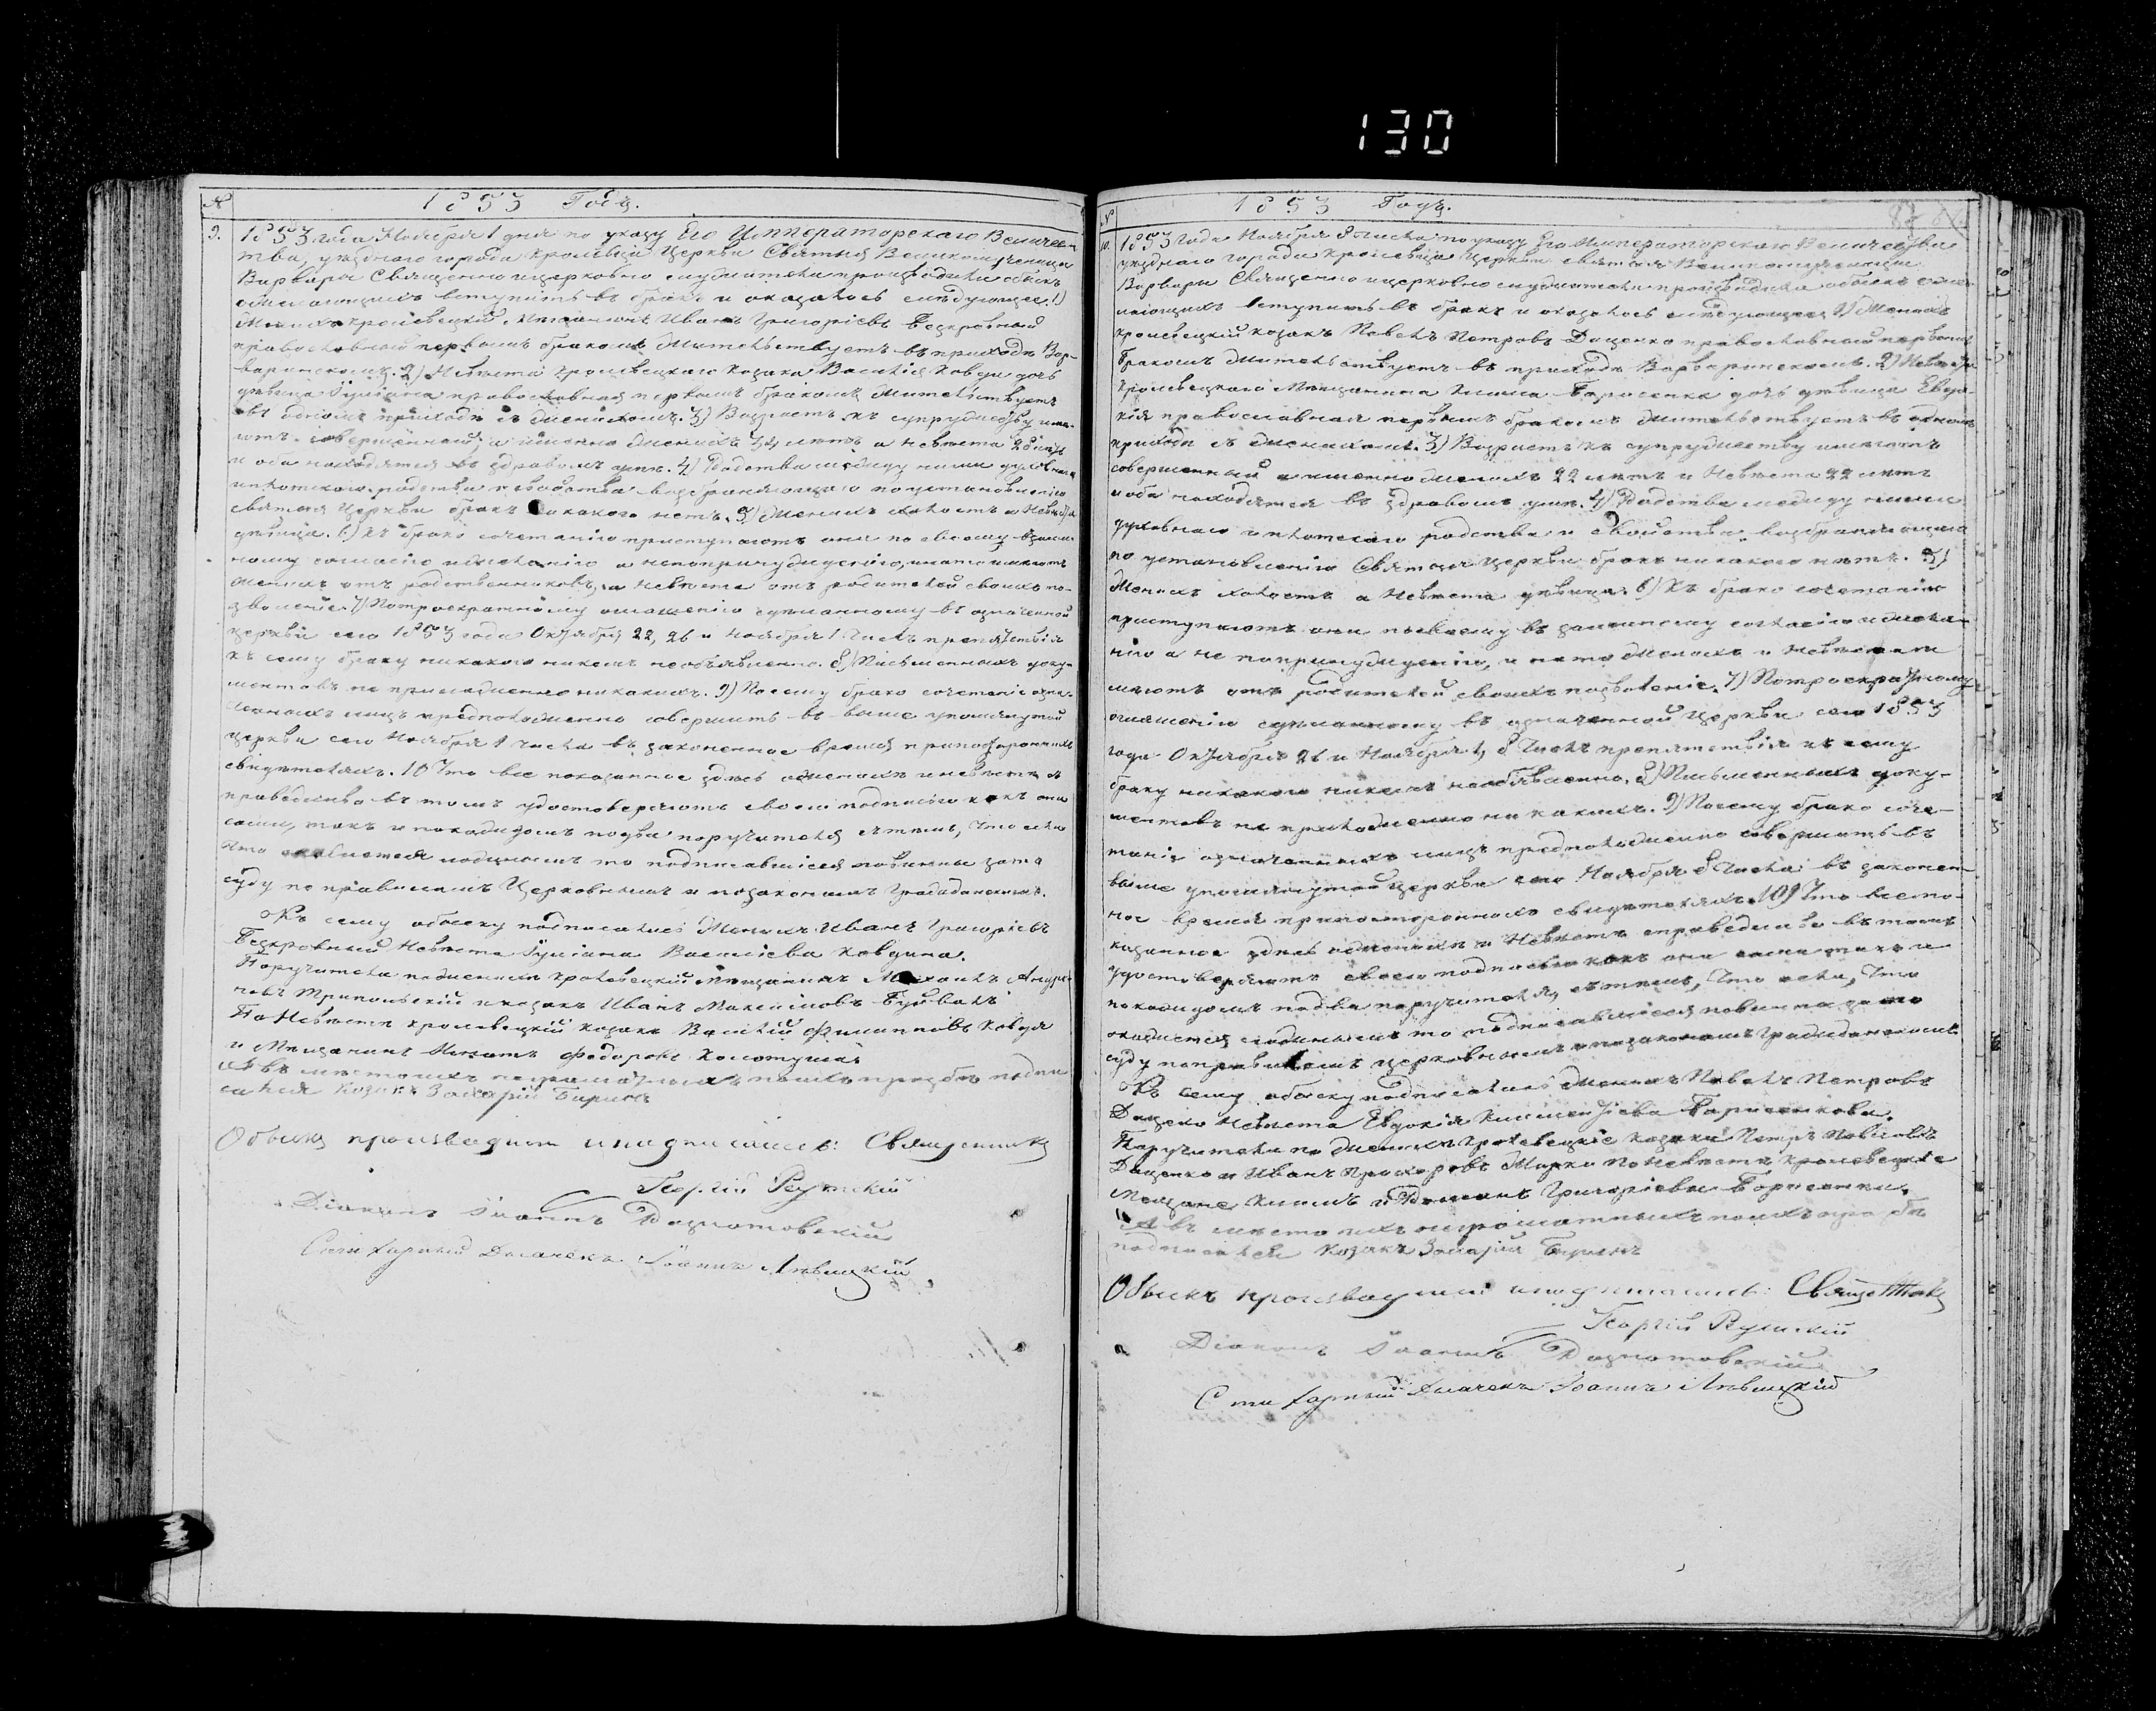 130
№ 1853 Годъ.
9. 1853 года Ноября 1 дня по указу Его Императорскаго Величес-
тва, уезднаго города Кролевца Церкви Святыя Великомученицы
Варвары Священно и церковно служители производили обыскъ
о желающихъ вступить въ бракъ и оказалось следующее. 1)
Женихъ кролевецкій мещанинъ Иванъ Григоріевъ Безкровный
православный первымъ бракомъ жительствуетъ въ приходе Вар-
варинскомъ. 2) Невеста кролевецкаго козака Василія Ковди дочь
девица Іуліана православная первымъ бракомъ жительствуетъ
въ одномъ приходе съ женихомъ. 3) Возрастъ къ супружеству име-
ютъ совершенный, а именно женихъ 34 летъ а невеста 28 летъ
и оба находятся въ здравомъ уме. 4) Родства между ними духовнаго
и плотскаго родства и свойства возбраняющаго по установленію
святыя Церкви бракъ никакого нетъ. 5) Женихъ холостъ а Невеста
девица. 6) Къ брако сочетанію приступаютъ они по своему взаим-
ному согласію и желанію а не по принужденію, и на то имеютъ
женихъ отъ родственниковъ, а невеста отъ родителей своихъ по-
зволеніе. 7) По троекратному оглашенію сделанному въ означенной
церкви сего 1853 года Октября 22, 26 и Ноября 1 числъ препятствія
къ сему браку никакого никемъ не объявленно. 8) Письменныхъ доку-
ментовъ не приложенно никакихъ. 9) По сему брако сочетаніе озна-
ченныхъ лицъ предположенно совершить въ выше упомянутой
церкви сего Ноября 1 числа въ законенное время при постороннихъ
свидетеляхъ. 10 Что все показанное здесь о женихе и невесте с
праведливо въ томъ удостоверяютъ своею подписью какъ они
сами, такъ и по каждомъ по два поручителя съ темъ, что если
что окажется ложнымъ то подписавшіеся повинны за то
суду по правиламъ Церковнымъ и по законамъ Гражданскимъ.
Къ сему обыску подписались Женихъ Иванъ Григоріевъ
Безкровный Невеста Іуліана Василіева Ковдина.
Поручители по женихе кролевецкій мещанинъ М
Трипольскій и козакъ Иванъ Максимовъ
По Невесте кролевецкій козакъ Василій Филипповъ Ковдя
и Мещанинъ Федоровъ Колотуша
А въ место ихъ неграмотныхъ по ихъ прозбе подпи
сался Козакъ Захарій Биринъ
Обыскъ производили и подписались: Священникъ
Георгій Реутскій
Діаконъ Іоаннъ
Стихарный Дьячекъ Іоаннъ Левицкій
№ 1853 Годъ.
10. 1853 года Ноября 8 числа по указу Его Императорскаго Величества
уезднаго города Кролевца Церкви святыя Великомученицы
Варвары Священно и церковно служители производили обыскъ о же-
лающихъ вступить въ бракъ и оказалось следующее 1) Женихъ
кролевецкій козакъ Павелъ Петровъ Даценко православный первымъ
бракомъ жительствуетъ въ приходе Варваринскомъ. 2) Невеста
Кролевецкаго Мещанина Клима Борисенка дочь девица Евдо-
кія православная первымъ бракомъ жительствуетъ въ одномъ
приходе съ женихомъ. 3) Возрастъ къ супружеству имеютъ
совершенный а именно женихъ 22 летъ и Невеста 22 летъ
и оба находятся въ здравомъ уме. 4) Родства между ними
духовнаго и плотскаго родства и свойства возбраняющаго
по установленію Святыя Церкви бракъ никакого нетъ. 5)
Женихъ холостъ а Невеста девица. 6) Къ брако сочетанію
приступаютъ они по своему взаимному согласію и жела-
нію а не по принужденію, и на то женихъ и невеста и
меютъ отъ родителей своихъ позволеніе. 7) По троекратному
оглашенію сделанному въ означенной Церкви сего 1853
года Октября 26 и Ноября 1, 8 числъ препятствія къ сему
браку никакого никемъ необъявленно. 8) Письменныхъ доку-
ментовъ не приложенно никакихъ. 9) По сему брако соче-
таніе означенныхъ лицъ предположенно совершить въ
выше упомянутой церкви сего Ноября 8 числа въ законен-
ное время при постороннихъ свидетеляхъ. 10) Что все по-
казанное здесь о женихе и Невесте справедливо въ томъ
удостоверяютъ своею подписью какъ они сами такъ и
по каждомъ по два поручителя, съ темъ, что если, что
окажется ложнымъ то подписавшіеся повинны за то
суду по правиламъ церковнымъ и по законамъ Гражданскимъ.
Къ сему обыску подписались женихъ Павелъ Петровъ
Даценко Невеста Евдокія Климентіева Борисенкова.
Поручители по женихе Кролевецкіе козаки Петръ Павловъ
Даценко и Иванъ Прохоровъ По Невесте кролевецкіе
Мещане Климъ и Романъ Григоріевы Борисенки.
А въ место ихъ неграмотныхъ по ихъ прозбе
подписался Козакъ Захарій Биринъ
Обыскъ производили и подписались: Священникъ
Георгій Реутскій
Діаконъ Іоаннъ
Стихарный Дьячекъ Іоаннъ Левицкій